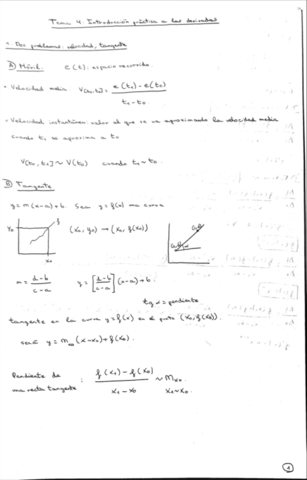 Tema 4. Introducción práctica a las derivadas
1. Dos problemas: velocidad, tangente
A) Móvil: e(t): espacio recorrido
• Velocidad media: V[t0,t1] = e(t1) - e(t0) / t1 - t0
• Velocidad instantánea: valor al que se va aproximando la velocidad media
cuando t1 se aproxima a t0
V[t0, t1] ~ V(t0) cuando t1 ~ t0.
B) Tangente
y = m(x-a)+b. Sea y = f(x) una curva
y0 f (x0, y0) → (x0, f(x0))
x0
m = d-b / c-a y = [d-b / c-a] (x-a) + b.
tg α = pendiente
tangente en la curva y = f(x) en el punto (x0, f(x0)).
será y = m (x-x0) + f(x0).
Pendiente de
una recta tangente = f(x1) - f(x0) / x1 - x0 ~ m x0
x1 ~ x0.
1